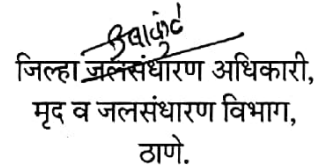 जिल्हा जलसंधारण अधिकारी,
मृद व जलसंधारण विभाग,
ठाणे.